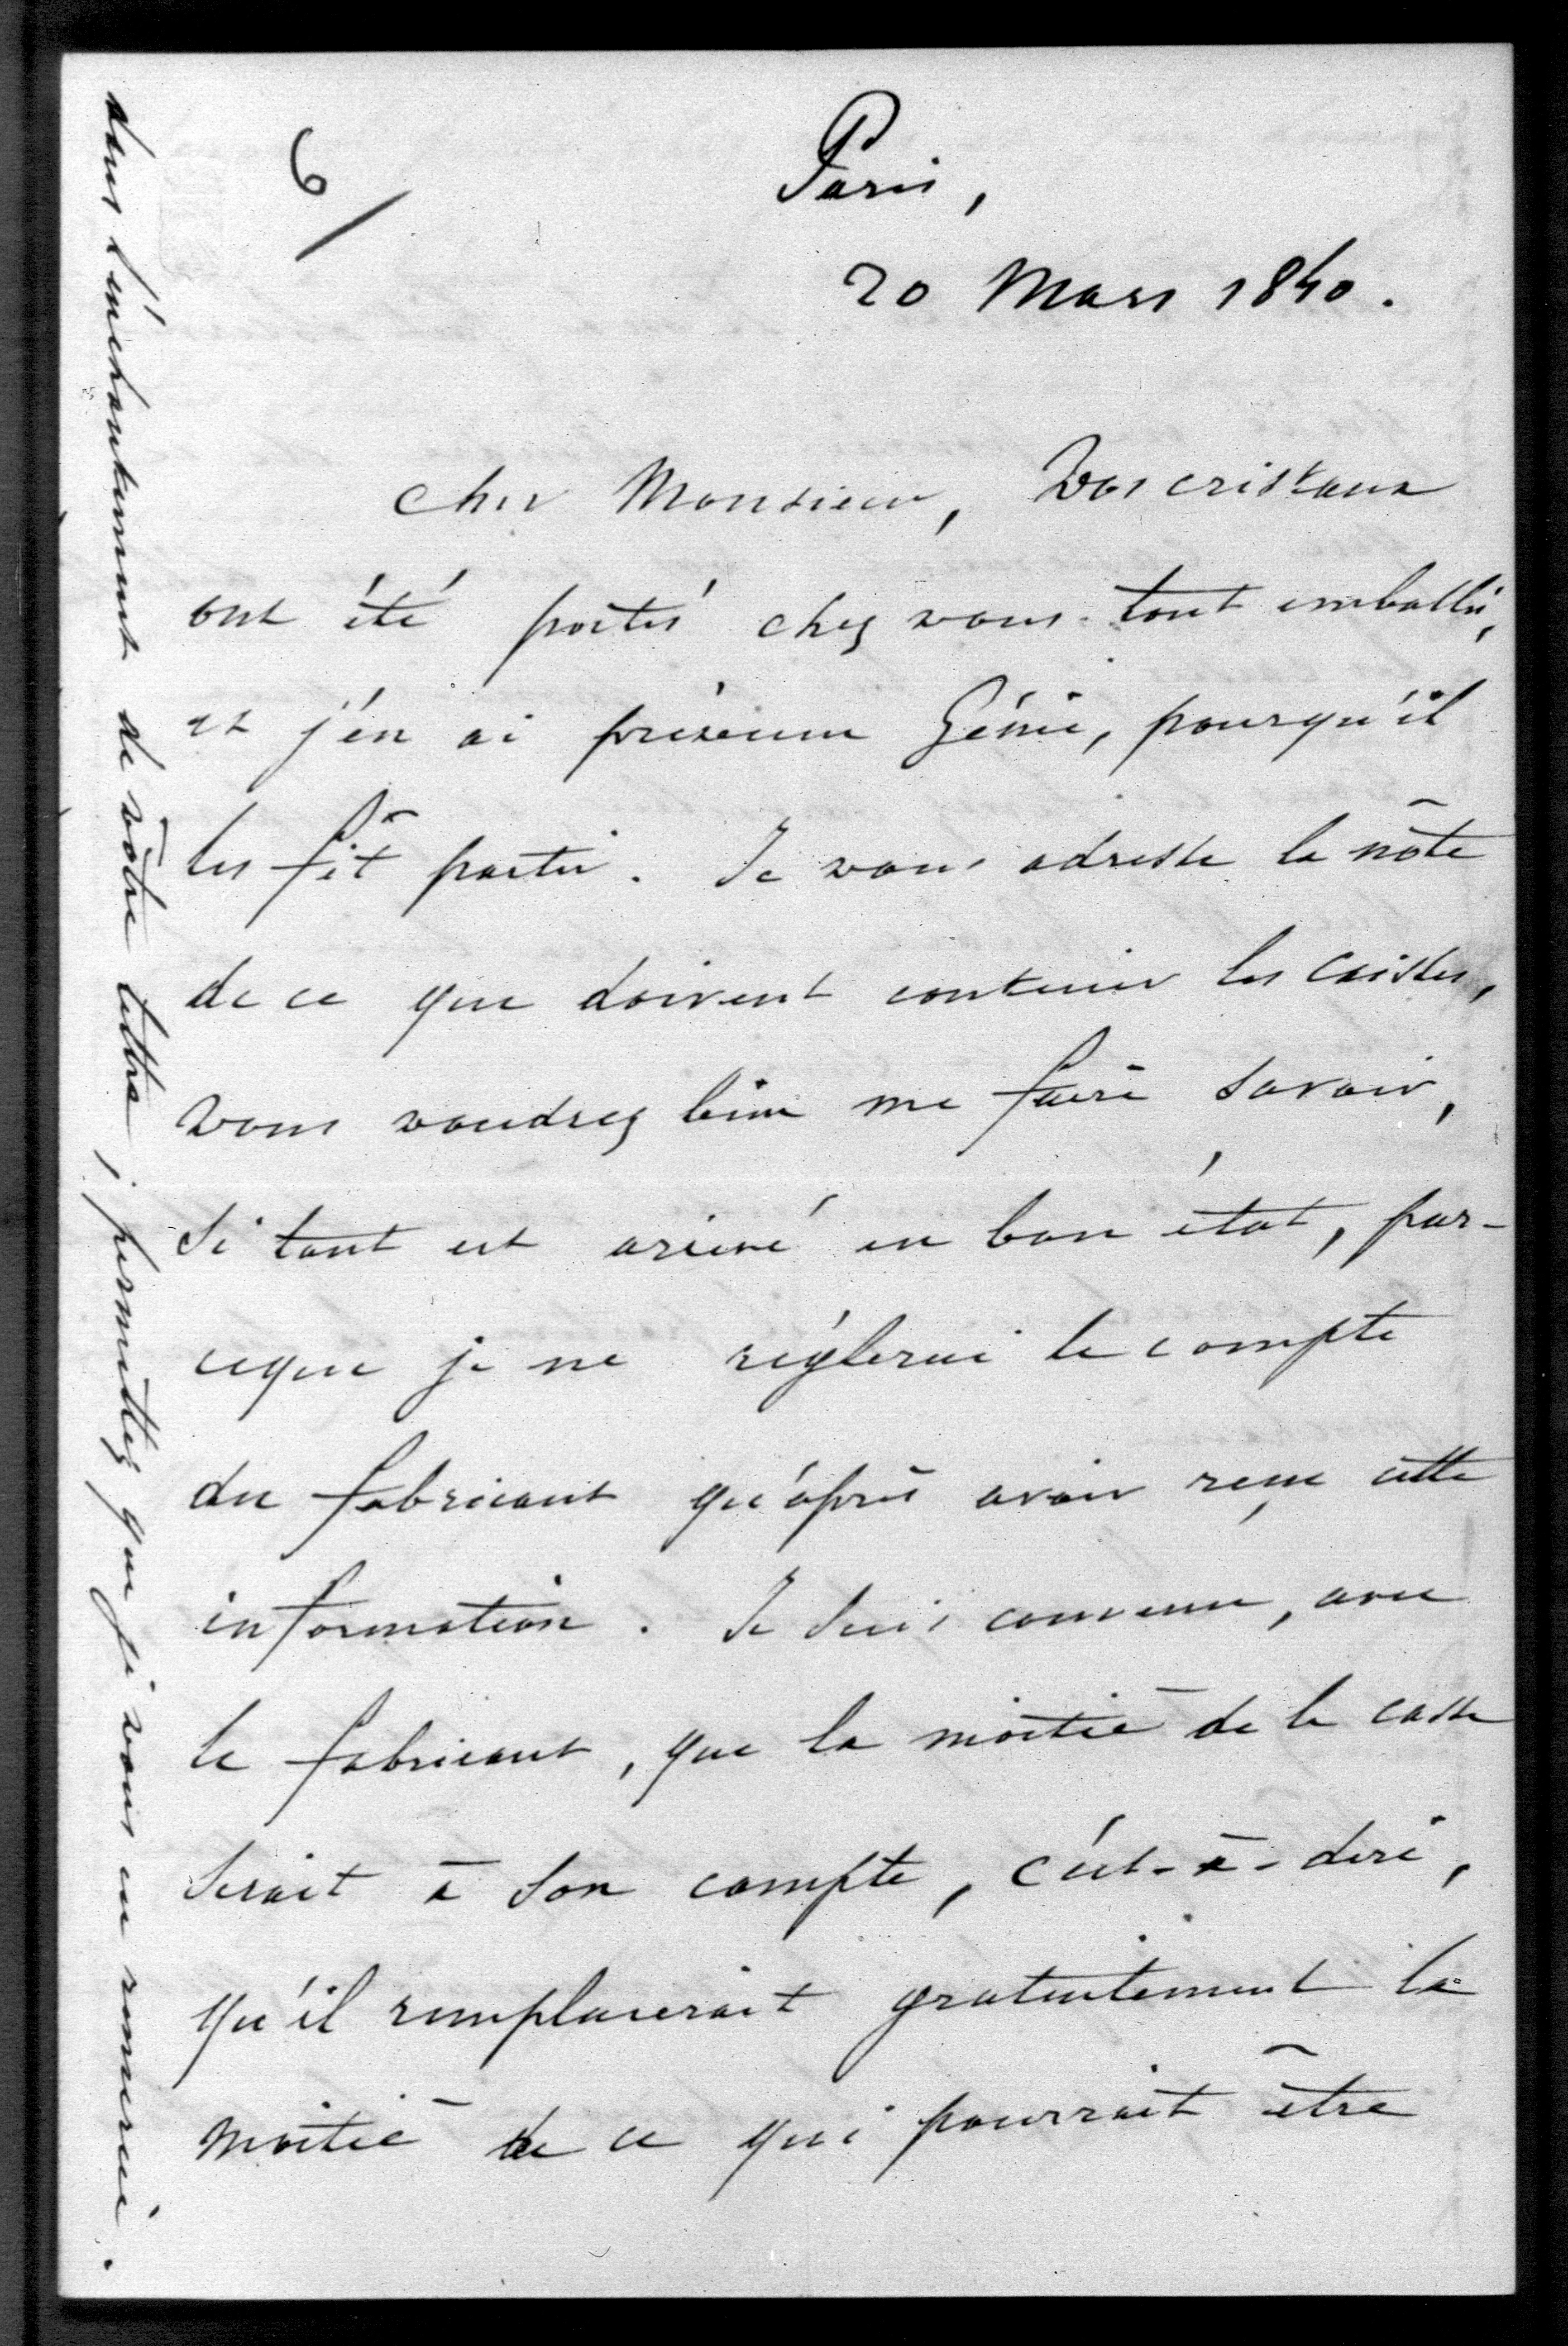 6/
Paris,
20 Mars 1840.
Cher Monsieur, Vos cristaux
ont été portés chez vous tout emballés,
et j'en ai prévenu Génie, pourqu'il
les fit partir. Je vous adresse la note
de ce que doivent contenir les caisses,
vous voudrez bien me faire savoir,
Si tout est arrivé en bon état, par-
ceque je ne réglerai le compte
du fabricant qu'après avoir reçu cette
information. Je suis convenu, avec
le fabricant, que la moitié de la casse
Serait à Son compte, c'est-à-dire,
qu'il remplacerait gratuitement la
moitié de ce qui pourrait être
dans l'enchantement de votre lettre ; permettez que je vous en remercie.